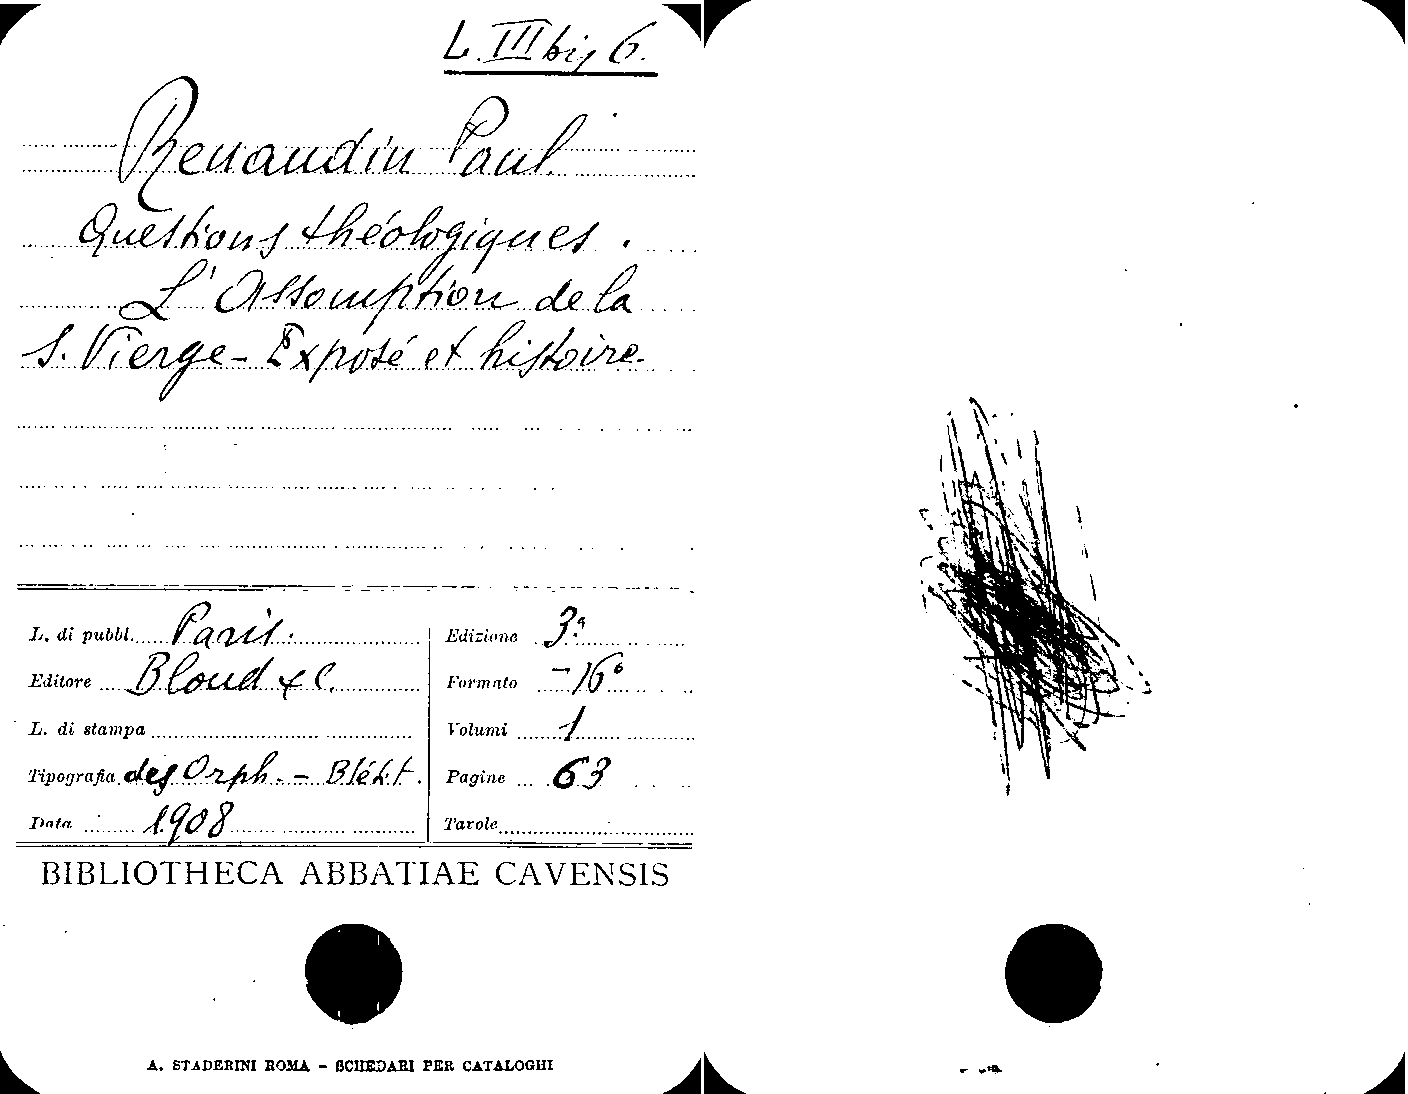 L. III bis 6.
Renaudin Paul.
Questions théologiques.
L'Assomption de la
S. Vierge - Exposé et histoire.
L. di pubbl. Paris.
Editore Bloud & C.
L. di stampa
Tipografia des Orph. - Blét.t.
Data 1908
Edizione 3ª
Formato -16°
Volumi 1
Pagine 63
Tavole
BIBLIOTHECA ABBATIAE CAVENSIS
A. STADERINI ROMA - SCHEDARI PER CATALOGHI